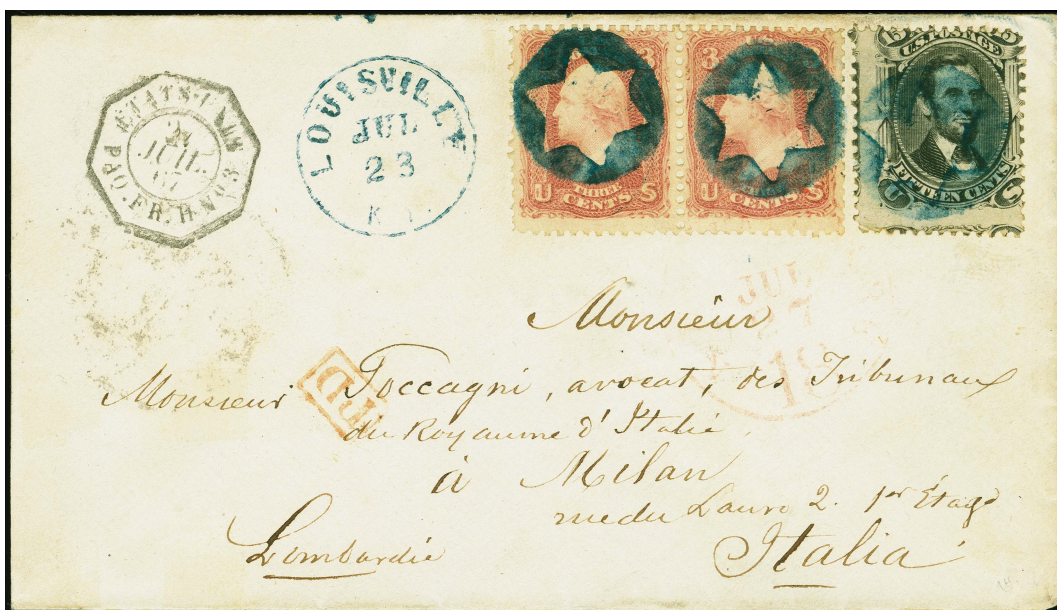 ETATS-UNIS
2
JUIL.
67
P.BO.FR.H.NO3
LOUISVILLE
JUL
23
KY.
3
THREE
U CENTS S
3
U CENTS S
15 15
U.S. POSTAGE
FIFTEEN CENTS
U S
JUL
27
PD
Monsieur
Monsieur Toccagni, avocat, des Tribunaux
du Royaume d'Italie
à Milan
rue du Lauro 2. 1er Étage
Lombardie Italia